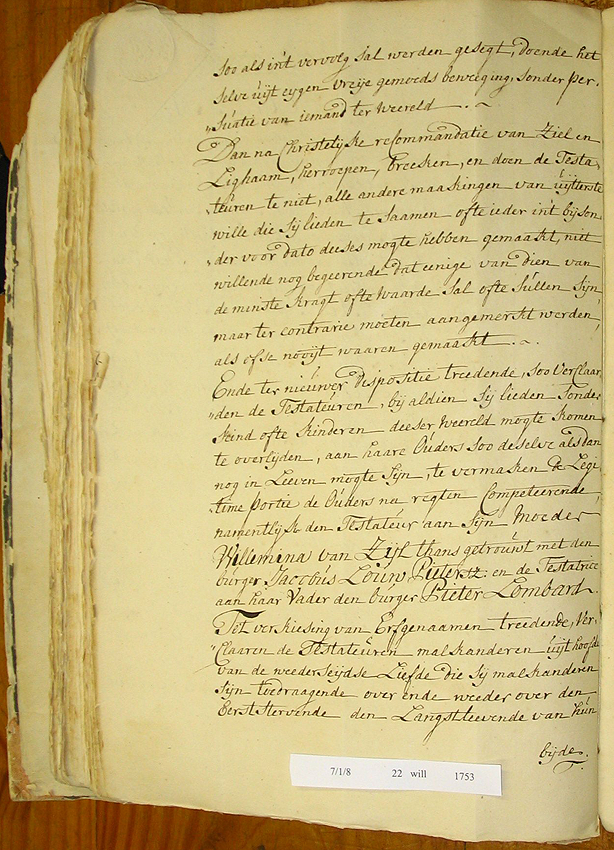 Soo als in't vervolg sal werden gesegt, doende het
selve uijt eygen vreije gemoeds beweeging, sonder per-
„suatie van iemand ter Weereld
Dan na Christelijke recommandatie van Ziel en
Lighaam, herroepen, breeken, en doen de Testa-
„teuren te niet, alle andere maakingen van uijterste
wille die sij lieden te saamen ofte ieder in't bijson
„der voor dato deeses mogte hebben gemaakt, niet
willende nog begeerende dat eenige van dien van
de minste kragt ofte waarde sal ofte sullen sijn
maar ter contrarie moeten aangemerkt werden,
als of se nooijt waaren gemaakt
Ende ter nieuwer dispositie treedende, soo verklaar
„den de Testateuren, bij aldien sij lieden sonder
kind ofte kinderen deeser Weereld mogte komen
te overlijden, aan haare Ouders soo deselve als dan
nog in Leeven mogte sijn, te vermaken de Legi
„time portie de Ouders na regten Competeerende,
namentlijk den Testateur aan sijn Moeder
Willemina van Zijl thans getrouwt met den
burger Jacobus Louw Pietersz: en de Testatrice
aan haar Vader den burger Pieter Lombard.
Tot verkiesing van Erfgenaamen treedende, Ver-
Claaren de Testateuren malkanderen uijt hoofde
van de weederseijdse Liefde die sij malkanderen
sijn toedraagende over ende weeder over den
Eerststervende den Langstleevende van hun
bijde.
7/1/8 22 will 1753